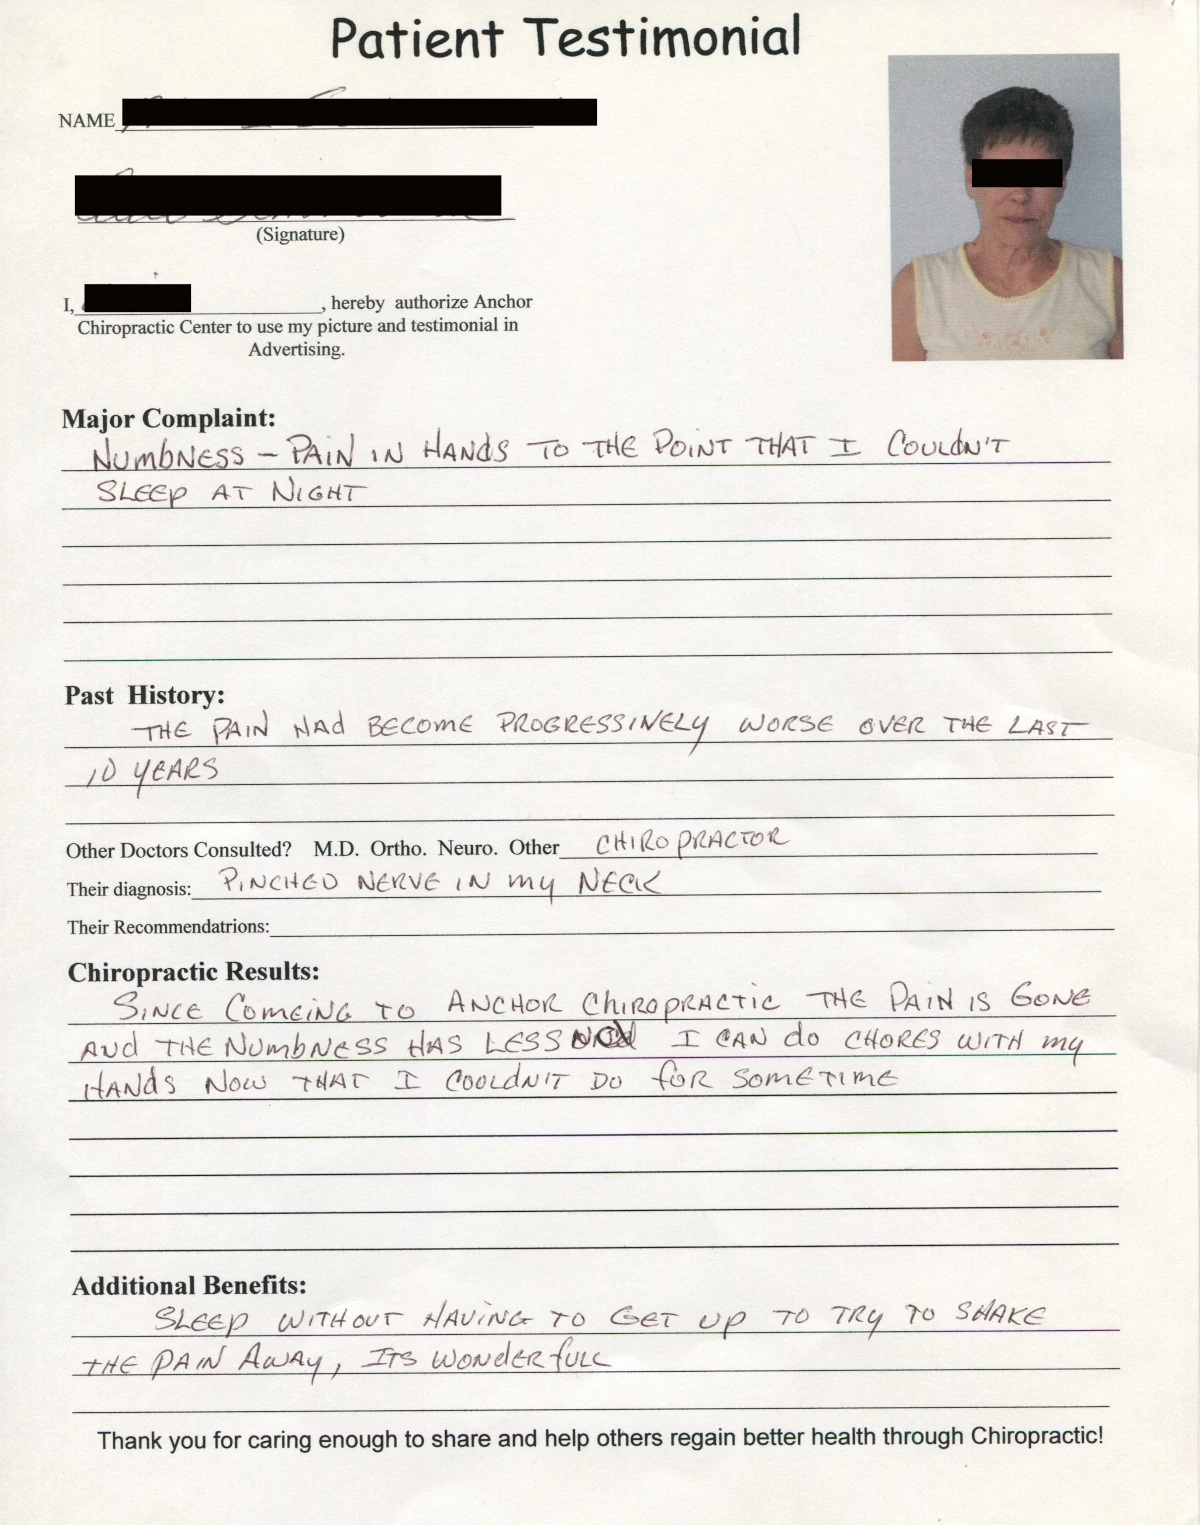 Patient Testimonial
NAME
(Signature)
I, , hereby authorize Anchor
Chiropractic Center to use my picture and testimonial in
Advertising.
Major Complaint:
NUMBNESS – PAIN IN HANDS TO THE POINT THAT I COULDN'T
SLEEP AT NIGHT
Past History:
THE PAIN HAd BECOME PROGRESSINELY WORSE OVER THE LAST
10 YEARS
Other Doctors Consulted? M.D. Ortho. Neuro. Other CHIROPRACTOR
Their diagnosis: PINCHED NERVE IN my NECK
Their Recommendatrions:
Chiropractic Results:
SINCE COMEING TO ANCHOR CHIROPRACTIC THE PAIN IS GONE
AND THE NUMBNESS HAS LESS I CAN do CHORES WITH my
HANDS NOW THAT I COULDN'T DO for SOMETIME
Additional Benefits:
SLEEP WITHOUT HAVING TO GET UP TO TRY TO SHAKE
THE PAIN AWAY, ITS WONDERfULL
Thank you for caring enough to share and help others regain better health through Chiropractic!